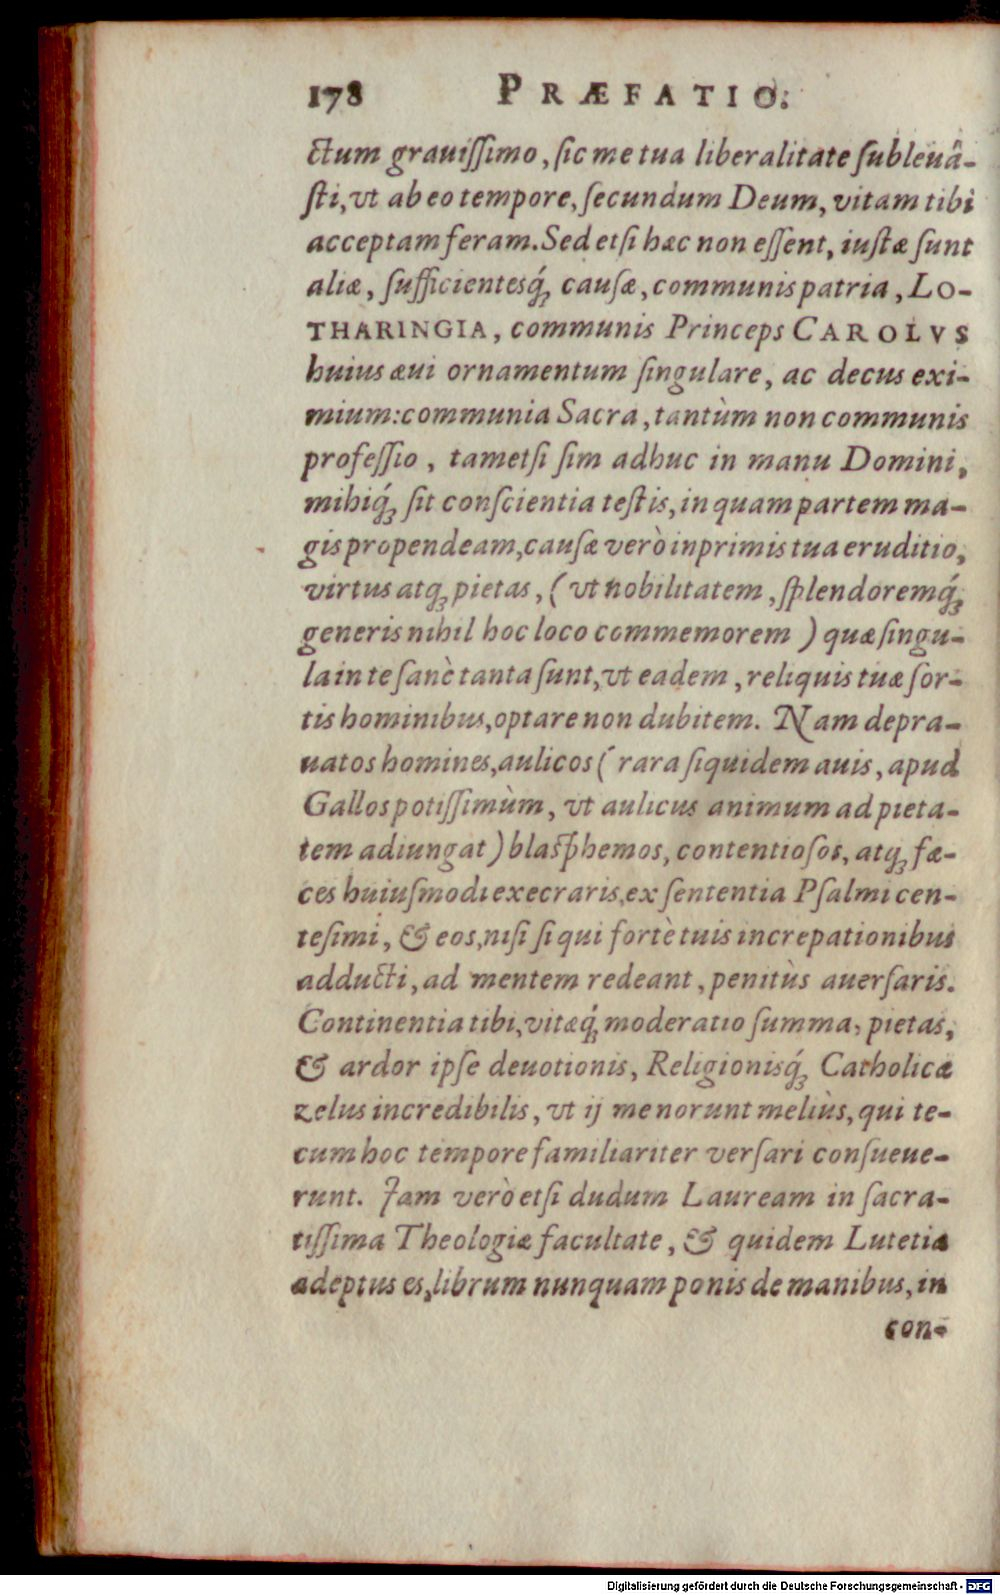 178 PRÆFATIO.
ctum grauissimo, sic me tua liberalitate subleuâ-
sti, vt ab eo tempore, secundum Deum, vitam tibi
acceptam feram. Sed etsi hæc non essent, iustæ sunt
aliæ, sufficientesq́; causæ, communis patria, LO-
THARINGIA, communis Princeps CAROLVS
huius æui ornamentum singulare, ac decus exi-
mium: communia Sacra, tantùm non communis
professio, tametsi sim adhuc in manu Domini,
mihiq́; sit conscientia testis, in quam partem ma-
gis propendeam, causæ verò inprimis tua eruditio,
virtus atq; pietas, (vt nobilitatem, splendoremq́;
generis nihil hoc loco commemorem) quæ singu-
la in te sanè tanta sunt, vt eadem, reliquis tuæ sor-
tis hominibus, optare non dubitem. Nam depra-
uatos homines, aulicos (rara siquidem auis, apud
Gallos potissimùm, vt aulicus animum ad pieta-
tem adiungat) blasphemos, contentiosos, atq; fæ-
ces huiusmodi execraris, ex sententia Psalmi cen-
tesimi, & eos, nisi si qui fortè tuis increpationibus
adducti, ad mentem redeant, penitùs auersaris.
Continentia tibi, vitæq́; moderatio summa, pietas,
& ardor ipse deuotionis, Religionisq́; Catholicæ
zelus incredibilis, vt ij me norunt meliùs, qui te-
cum hoc tempore familiariter versari consueue-
runt. Jam verò etsi dudum Lauream in sacra-
tissima Theologiæ facultate, & quidem Lutetiæ
adeptus es, librum nunquam ponis de manibus, in
con-
Digitalisierung gefördert durch die Deutsche Forschungsgemeinschaft - DFG